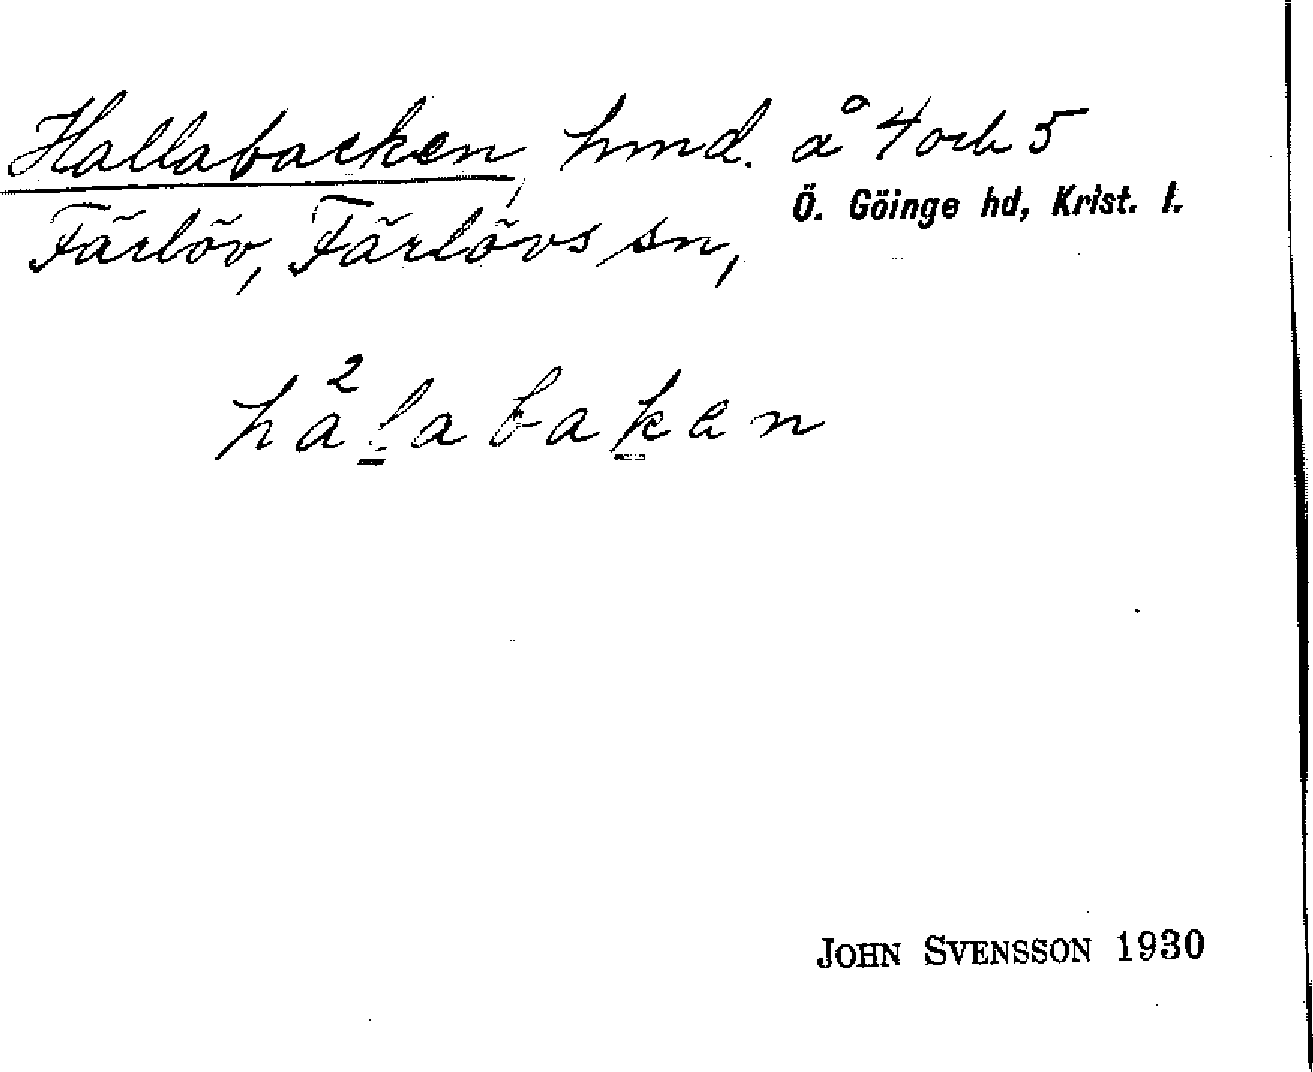 Hallabacken, hmd. å 4 och 5
Färlöv, Färlövs sn, Ö. Göinge hd, Krist. l.
ha²labaken
JOHN SVENSSON 1930